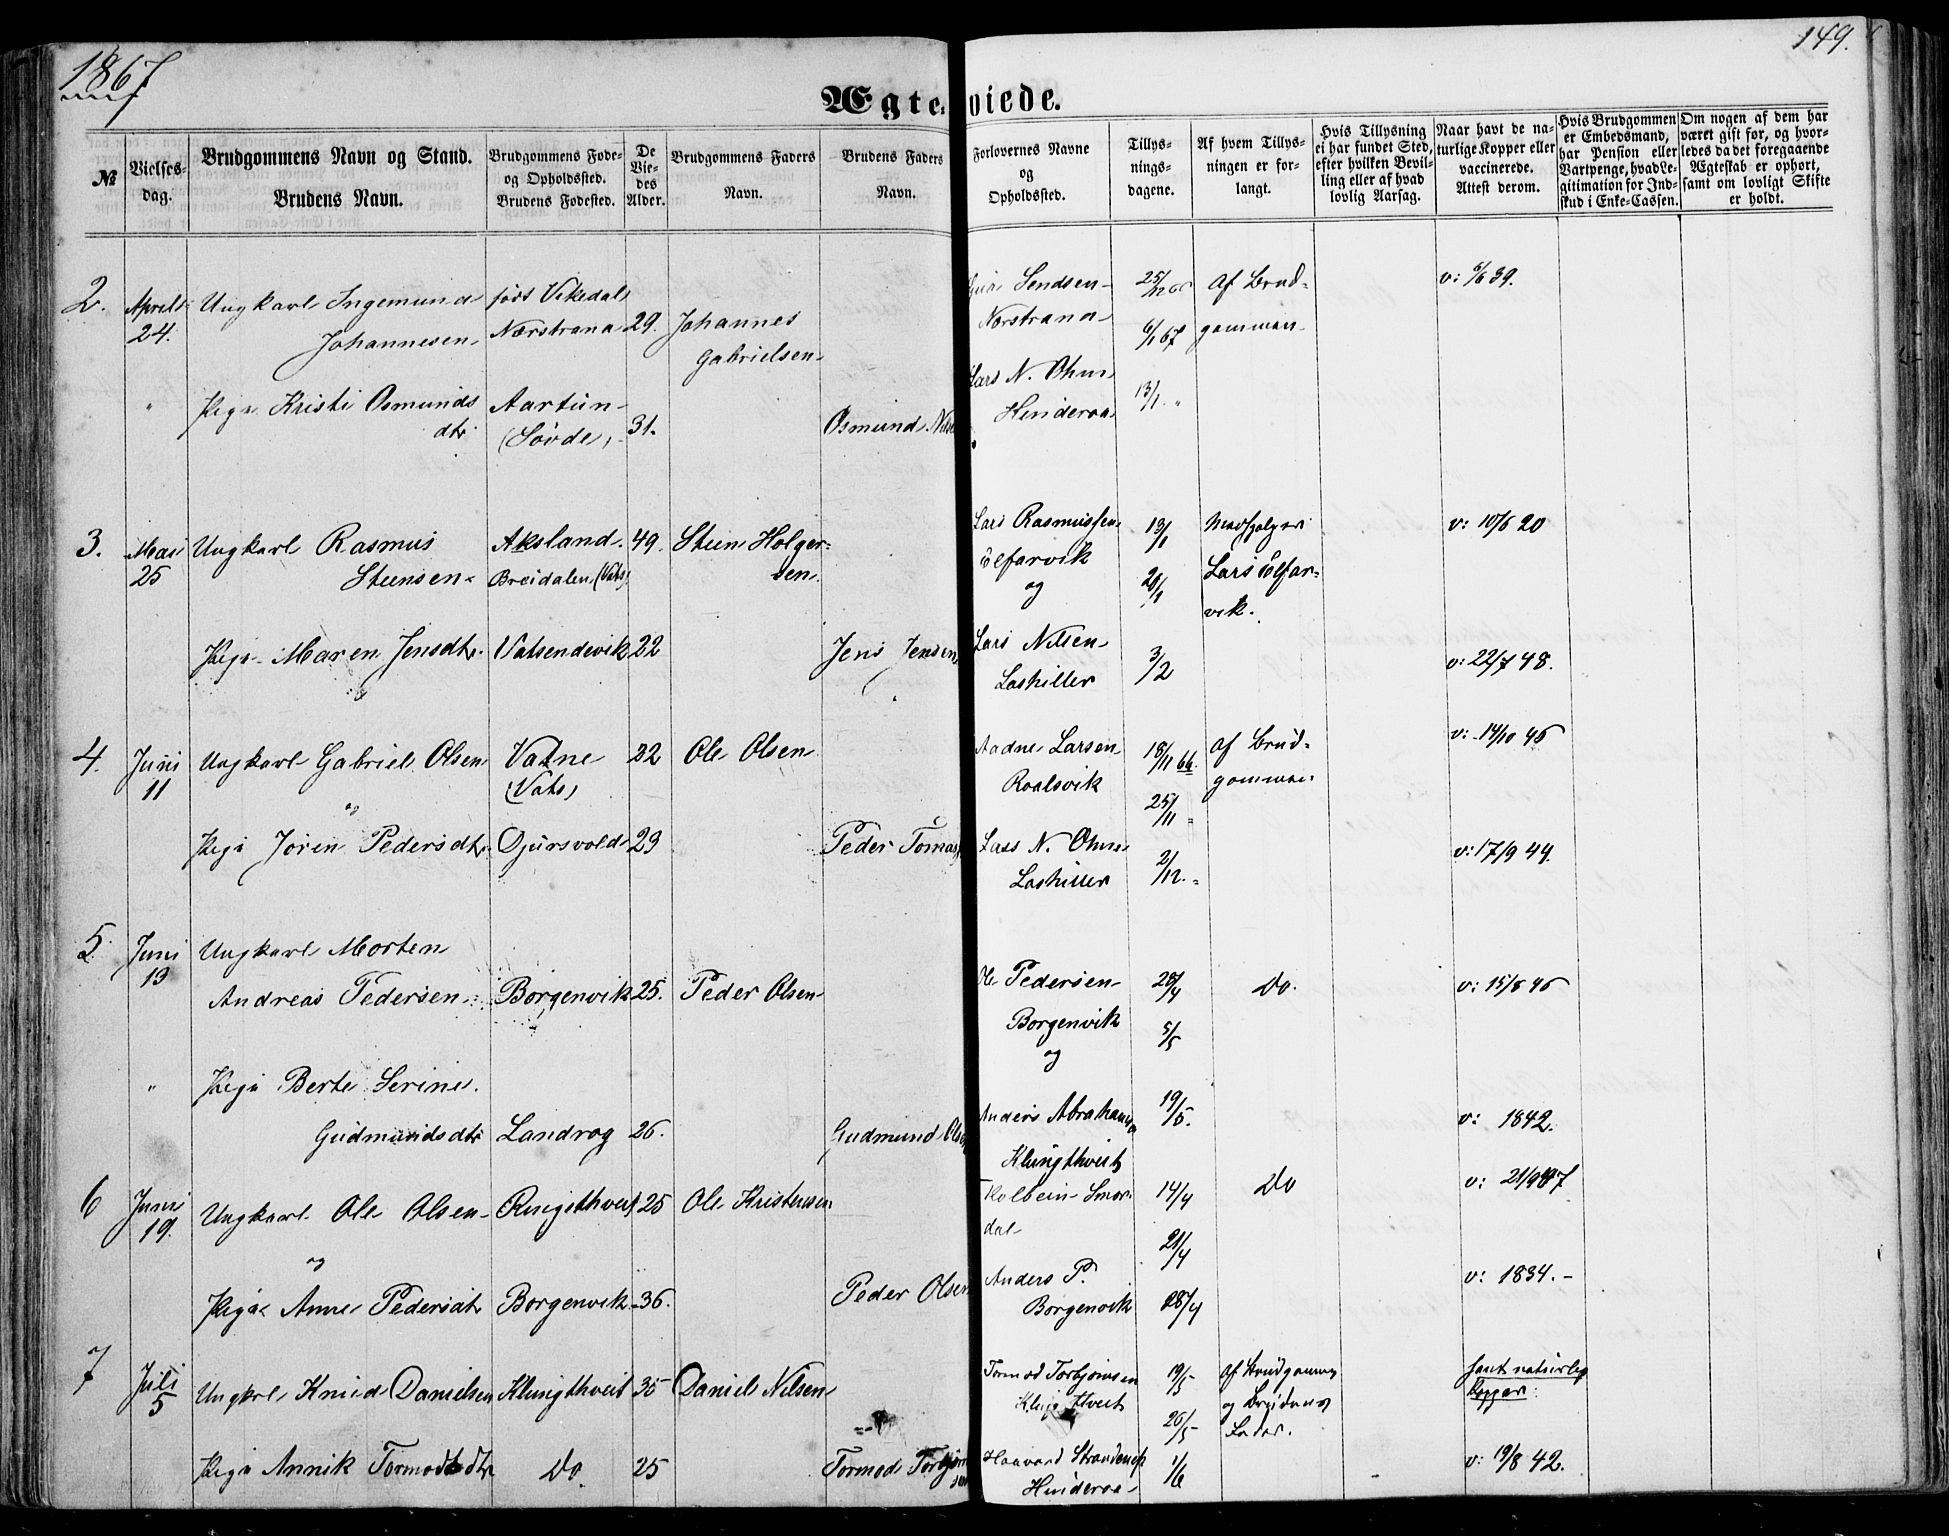 1867
149.
Ægteviede.
№
Vielsesdag.
Brudgommens Navn og Stand.
Brudens Navn.
Brudgommens Føde-
og Opholdssted.
Brudens Fødested.
De
Vie-
des
Alder.
Brudgommens Faders
Navn.
Brudens Faders
Navn.
Forlovernes Navne
og
Opholdssted.
Tillys-
nings-
dagene.
Af hvem Tillys-
ningen er for-
langt.
Hvis Tillysning
ei har fundet Sted,
efter hvilken Bevil-
ling eller af hvad
lovlig Aarsag.
Naar havt de na-
turlige Kopper eller
vaccinerede.
Attest derom.
Hvis Brudgommen
er Embedsmand,
har Pension eller
Vartpenge, hvad Le-
gitimation for Ind-
skud i Enke-Cassen.
Om nogen af dem har
været gift for, og hvor-
ledes da det foregaaende
Ægteskab er ophørt,
samt om lovligt Skifte
er holdt.
2. Aprils 24. Ungkarl Ingemund født Vikedal
Johannesen Nærstrand 29. Johannes
Gabrielsen
Sendsen
Nærstrand
25/12 66 6/1 67 Af Brud-
gommen
v: 6/6 39.
" Pige Kristi Osmunds Aartun
dtr (Søvde) 31. Osmund
Lars N. Ohm
Hinderaa
13/1 "
3. Mai 25 Ungkarl Rasmus Aksland 49. Steen Holger-
Steensen Breidalen (Vats) sen
Lars Rasmussen
Ølfarvik
og
13/1 20/1 Medhjelper
Lars Ølfar-
vik.
v: 10/6 20
Pige Maren Jensdtr Vatsendevik 22 Jens Jensen
Lars Nilsen
Lashiller
3/2
v: 22/7 48.
4. Juni 11 Ungkarl Gabriel Olsen Vatne 22 Ole Olsen
(Vats)
og
Aadne Larsen
Roalsvik
18/11 66. 25/11 Af Brud-
gommen
v: 14/10 45
Pige Jøren Pedersdtr Djursvold 23 Peder
Lars N. Ohm
Lashiller
2/12. "
v: 17/9 44.
5. Juni 13 Ungkarl Morten
Andreas Pedersen Borgenvik 25. Peder Olsen
Ole Pedersen
Borgenvik
og
28/4 5/5 Do.
v: 15/8 45
" Pige Berte Serine
Gudmundsdtr Landrog 26. Gudmund
Anders Abrahamsen
Klungthveit
19/5.
v: 1842.
6 Juni 19. Ungkarl Ole Olsen Ringsthveit 25 Ole Kristensen
og
Kolbein Smør-
dal
14/4 21/4 Do
v: 21/9
Pige Anne Pedersdtr Borgenvik 36. Peder Olsen
Anders P.
Borgenvik
28/4
v: 1834.
7 Juli 5 Ungkrl Knud Danielsen Klungthveit 35 Daniel Nilsen
Tormod Torbjørnsen
Klungthveit
19/5 26/5 Af Brudgommen
og Brudens
Fader.
havt naturlig
kopper:
Pige Annik Tormodsdtr Do 25 Tormod Torbjørn
sen
Haavard
Hinderaa
1/6
v: 19/8 42.